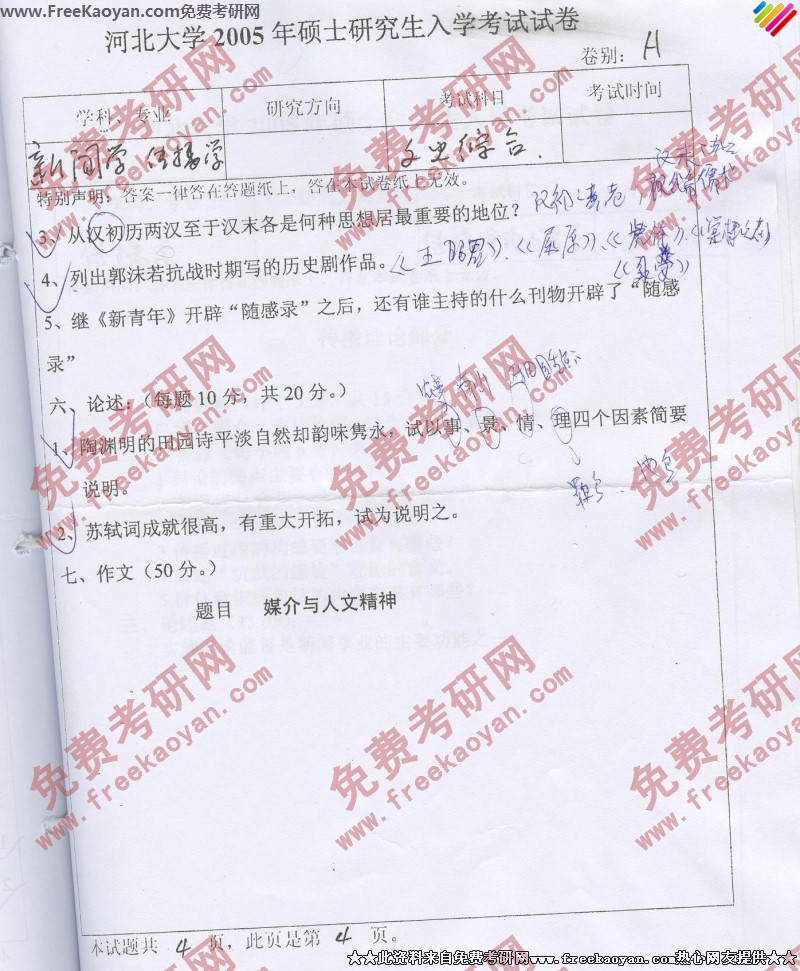 www.FreeKaoyan.com免费考研网
河北大学 2005 年硕士研究生入学考试试卷
卷别：A
学科、专业 研究方向 考试科目 考试时间
新闻学 传播学 文史综合.
特别声明：答案一律答在答题纸上，答在本试卷纸上无效。
3、从汉初历两汉至于汉末各是何种思想居最重要的地位？汉初：黄老，
4、列出郭沫若抗战时期写的历史剧作品。《《屈原》、
5、继《新青年》开辟“随感录”之后，还有谁主持的什么刊物开辟了“随感
录”
六、论述：（每题 10 分，共 20 分。）
1、陶渊明的田园诗平淡自然却韵味隽永，试以事、景、情、理四个因素简要
说明。
2、苏轼词成就很高，有重大开拓，试为说明之。
七、作文（50 分。）
题目 媒介与人文精神
本试题共 4 页，此页是第 4 页。
★★此资料来自免费考研网www.freekaoyan.com热心网友提供★★
免费考研网
www.freekaoyan.com